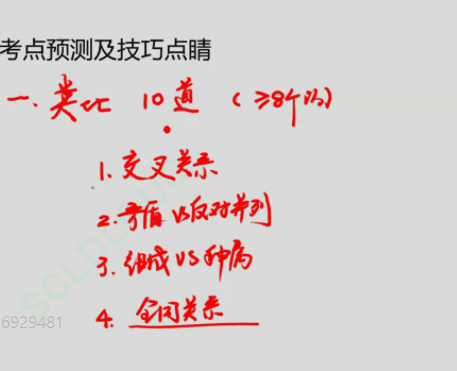 考点预测及技巧点睛
一. 类比 10道 (≥8个√)
1. 交叉关系
2. 矛盾 VS 反对并列
3. 组成 VS 种属
4. 全同关系
6929481